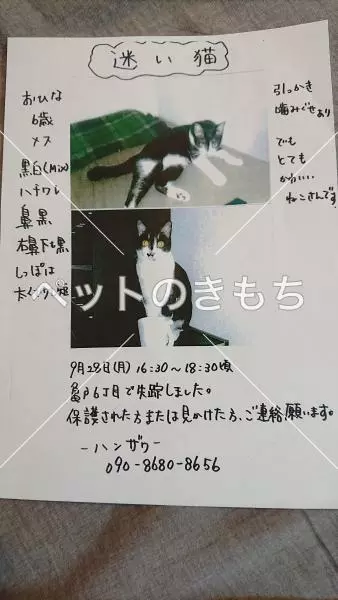 迷い猫
おひな
6歳
メス
黒白(Mix)
ハチワレ
鼻黒
右鼻下も黒
しっぽは
引っかき
噛みぐせあり
でも
とても
かわいい
ねこさんです
ペットのきもち
9月28日(月) 16:30〜18:30頃
6丁目で失踪しました。
保護された方または見かけた方、ご連絡願います。
-ハンザワ-
090-8680-8656